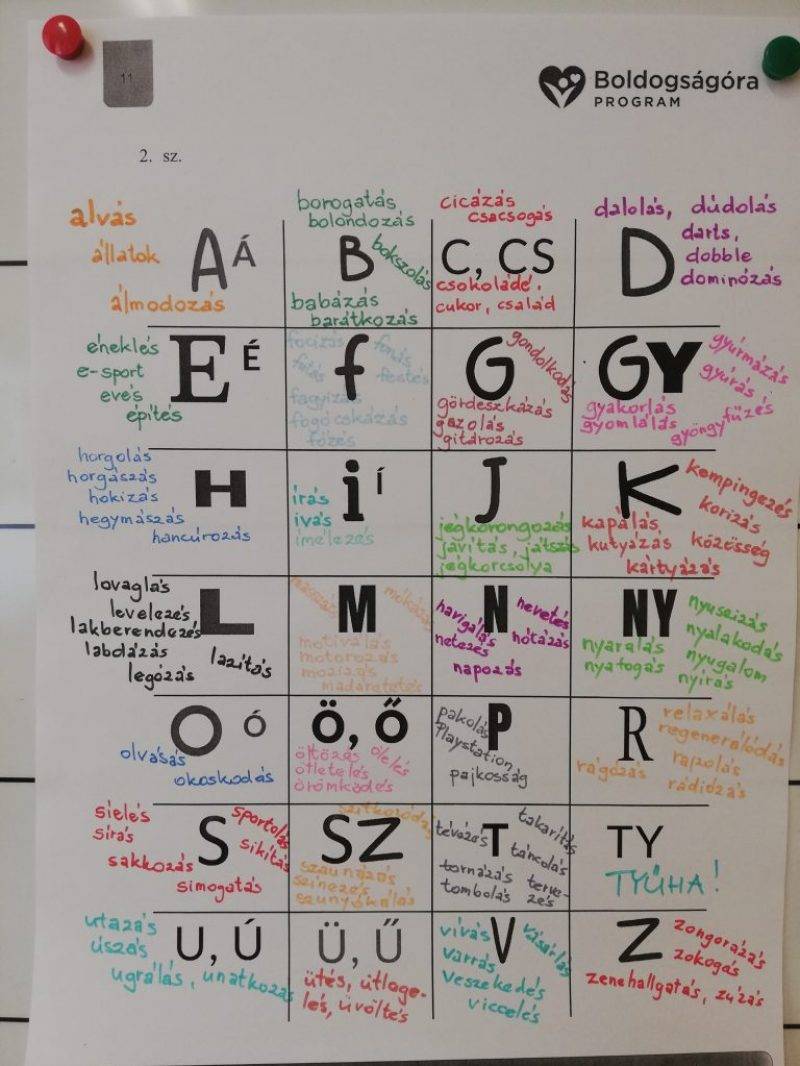 11
Boldogságóra
PROGRAM
2. sz.
alvás
állatok
A Á
álmodozás
borogatás
bolondozás
B
bokszolás
babázás
barátkozás
cicázás
csacsogás
C, CS
csokoládé,
cukor, család
dalolás, dúdolás
D
darts,
dobble
dominózás
éneklés
e-sport
evés
építés
E É
focizás
fonás
futás
f
festés
fagyizás
fogócskázás
főzés
gondolkodás
G
gördeszkázás
gazolás
gitározás
gyurmázás
GY
gyúrás
gyakorlás
fűzés
gyomlálás
gyöngy
horgolás
horgászás
hokizás
hegymászás
hancúrozás
H
i í
írás
ivás
ímélezés
J
jégkorongozás
javítás, játszás
jégkorcsolya
K
kempingezés
korizás
kapálás
kutyázás
közösség
kártyázás
lovaglás
levelezés
lakberendezés
labdázás
legózás
lazítás
L
masszázs
mókázás
M
motiválás
motorozás
mozizás
madáretetés
N
navigálás
netezés
nevetés
nótázás
napozás
NY
nyuszizás
nyalakodás
nyaralás
nyugalom
nyafogás
nyírás
O Ó
olvasás
okoskodás
Ö, Ő
öltözés
ölelés
ötletelés
örömködés
P
pakolás
Playstation
pajkosság
R
relaxálás
regenerálódás
rágózás
rajzolás
rádiózás
síelés
sírás
sportolás
S
sikítás
sakkozás
simogatás
szitkozódás
SZ
szaunázás
színezés
szunyókálás
takarítás
tévézés
T
táncolás
tornázás
tombolás
terve-
zés
TY
TYŰHA!
utazás
úszás
U, Ú
ugrálás, unatkozás
Ü, Ű
ütés, ütlege-
lés, üvöltés
vívás
V
vásárlás
varrás
veszekedés
viccelés
Z
zongorázás
zokogás
zenehallgatás, zúzás